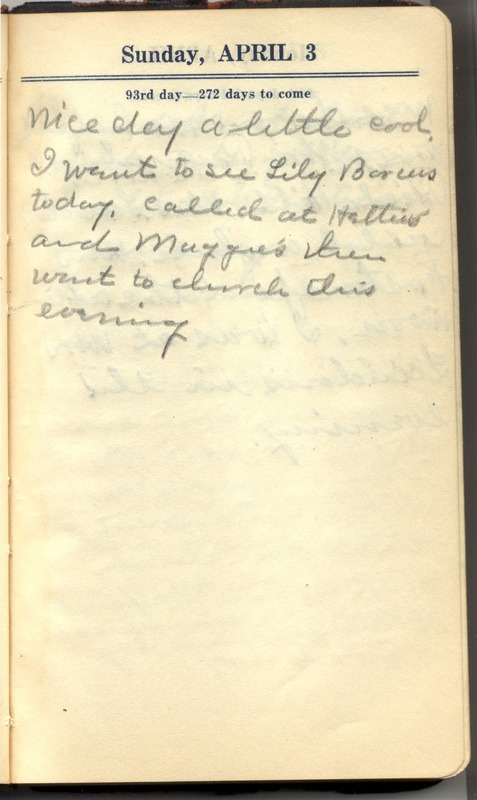 Sunday, APRIL 3
93rd day—272 days to come
Nice day a little cool.
I went to see Lily
today. called at Hatties
and Maggies then
went to church this
evening